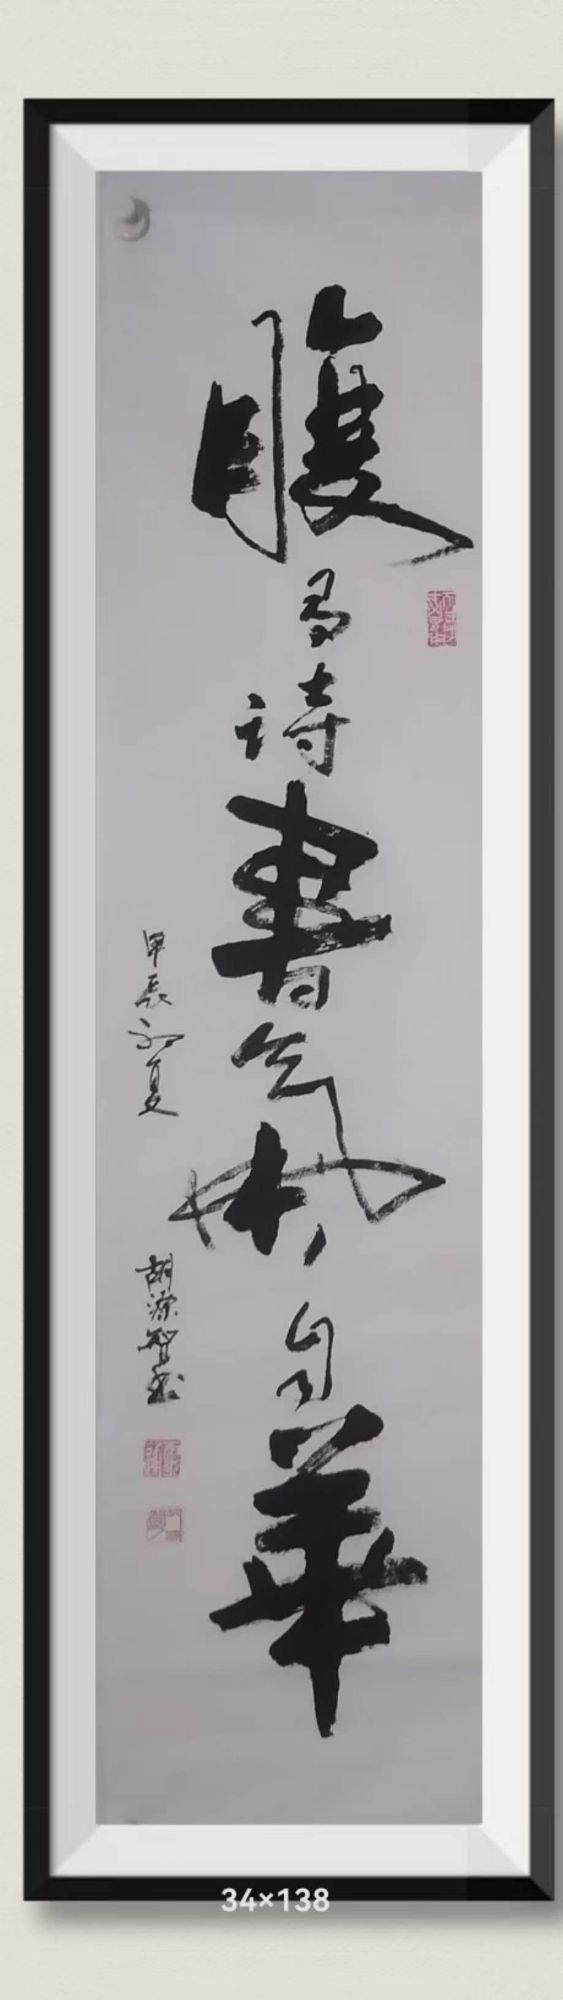 腹有诗書氣自華
甲辰初夏
胡深智书
34×138